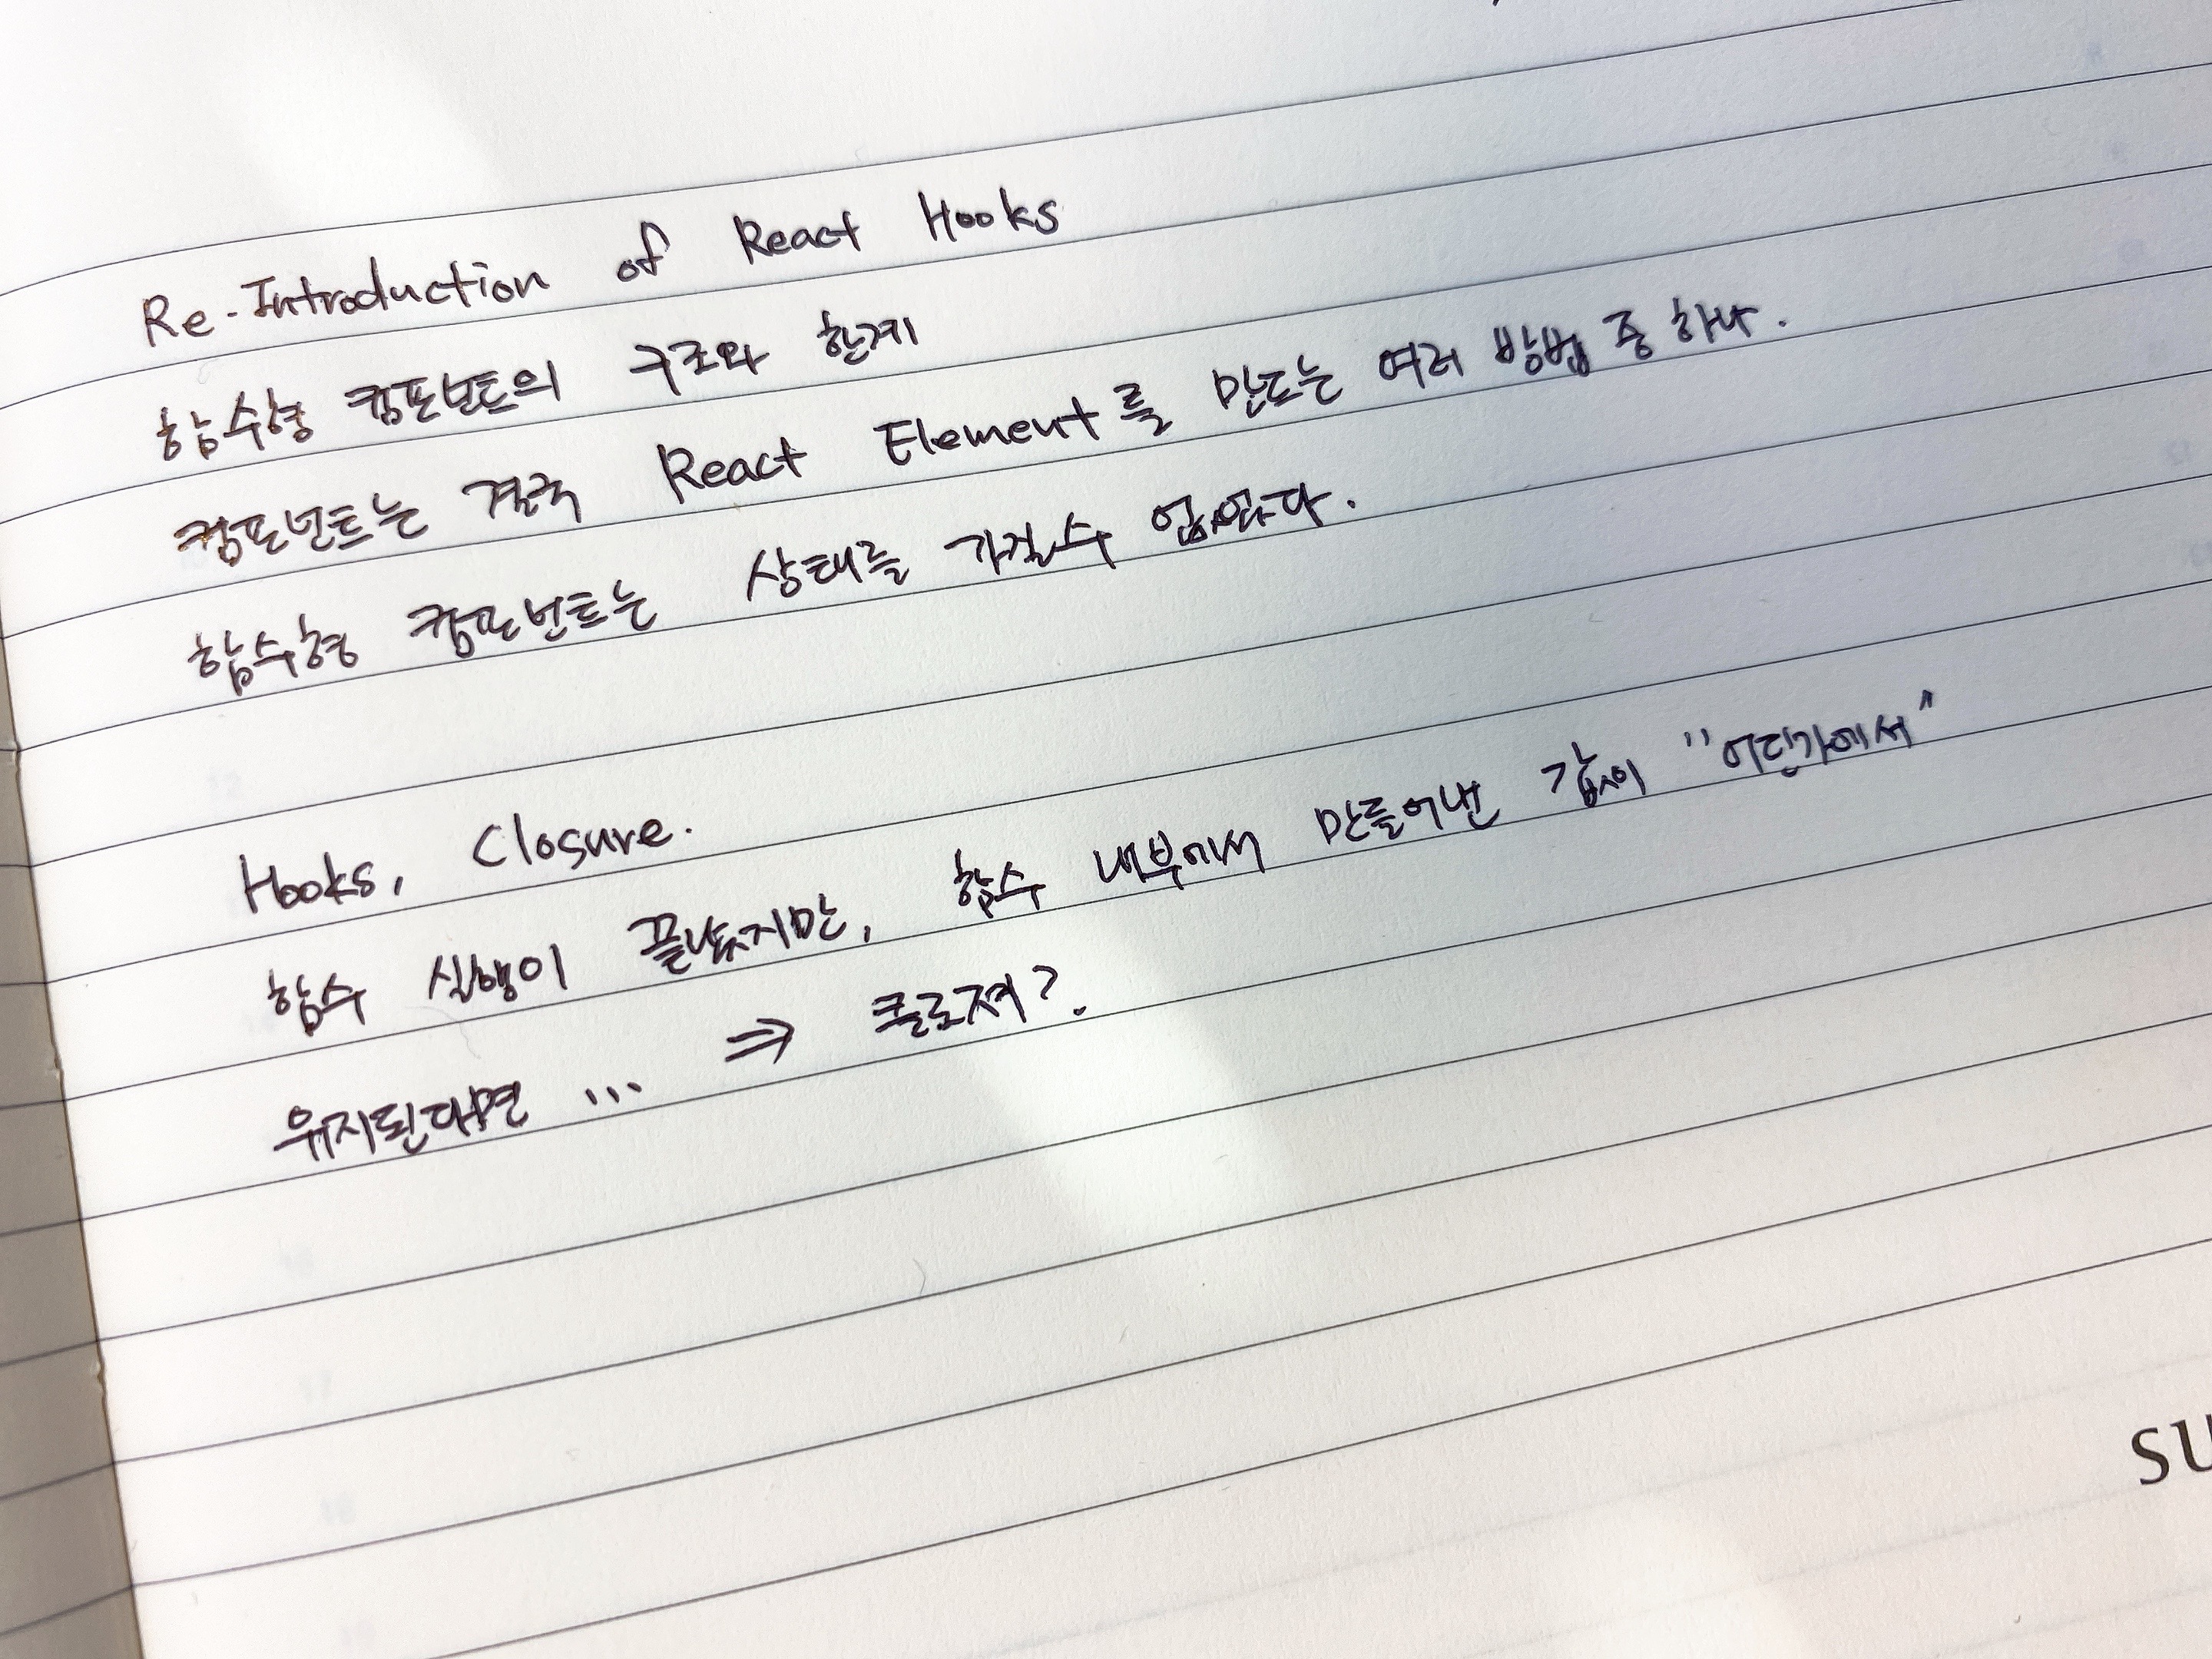 Re-Introduction of React Hooks
함수형 컴포넌트의 구조와 한계
컴포넌트는 결국 React Element를 만드는 여러 방법 중 하나.
함수형 컴포넌트는 상태를 가질수 없었다.
Hooks, Closure.
함수 실행이 끝났지만, 함수 내부에서 만들어낸 값이 "어딘가에서"
유지된다면 ... ⇒ 클로져?.
SU